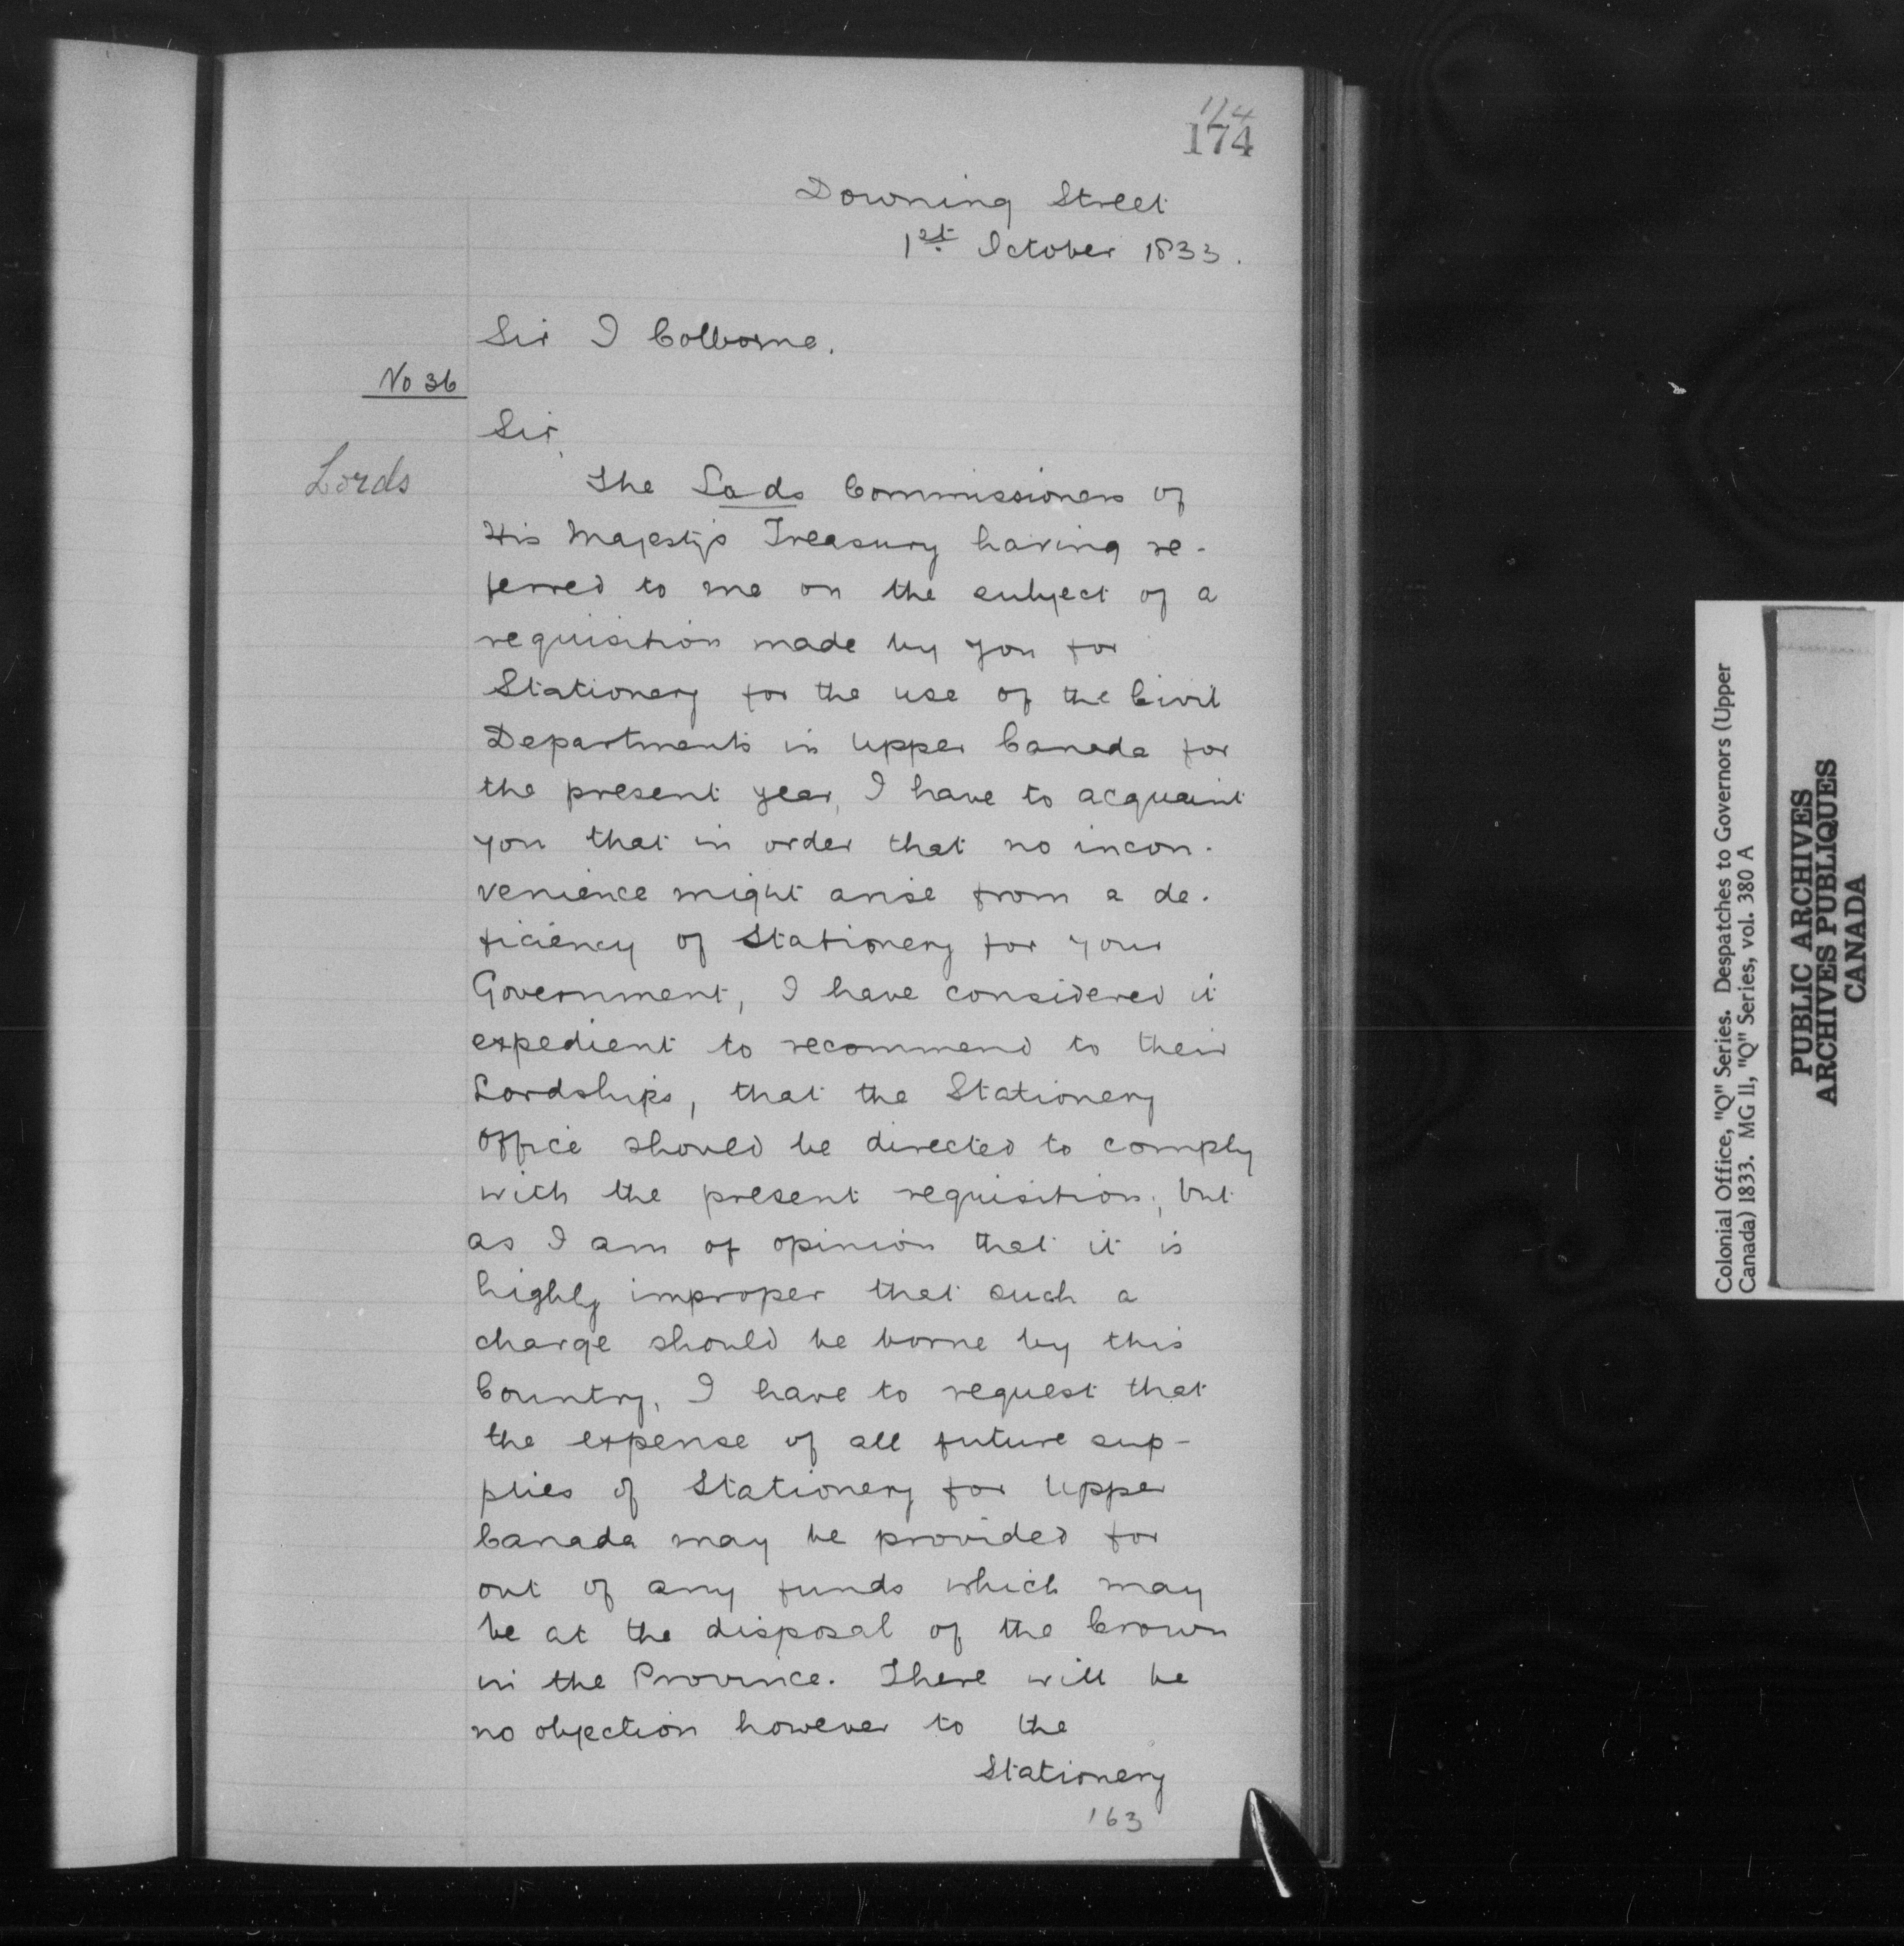 174
174
Downing Street
1st October 1833.
Sir J Colborne.
No 36
Sir,
Lords
The Lads Commissioners of
His Majesty's Treasury having re-
ferred to me on the subject of a
requisition made by you for
Stationery for the use of the Civil
Departments in Upper Canada for
the present year, I have to acquaint
you that in order that no incon-
venience might arise from a de-
ficiency of Stationery for your
Government, I have considered it
expedient to recommend to their
Lordships, that the Stationery
Office should be directed to comply
with the present requisition; but
as I am of opinion that it is
highly improper that such a
charge should be borne by this
Country, I have to request that
the expense of all future sup-
plies of Stationery for Upper
Canada may be provided for
out of any funds which may
be at the disposal of the Crown
in the Province. There will be
no objection however to the
Stationery
163
Colonial Office, "Q" Series. Despatches to Governors (Upper
Canada) 1833. MG 11, "Q" Series, vol. 380 A
PUBLIC ARCHIVES
ARCHIVES PUBLIQUES
CANADA